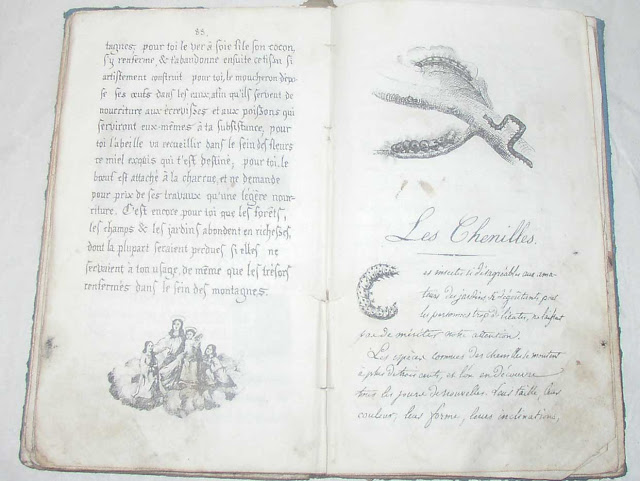 85.
tagnes; pour toi le ver à soie file son cocon,
s'y renferme, & t'abandonne ensuite ce tissu si
artistement construit pour toi, le moucheron dépo-
se ses œufs dans les eaux afin qu'ils servent de
nourriture aux écrevisses et aux poissons qui
serviront eux-mêmes à ta subsistance, pour
toi l'abeille va recueillir dans le sein des fleurs
ce miel exquis qui t'est destiné, pour toi, le
bœuf est attaché à la charrue, et ne demande
pour prix de ses travaux qu'une légère nour-
riture. C'est encore pour toi que les forêts,
les champs & les jardins abondent en richesses,
dont la plupart seraient perdues si elles ne
servaient à ton usage, de même que les trésors
renfermés dans le sein des montagnes.
Les Chenilles.
Ces insectes si désagréables aux ama-
teurs des jardins & dégoûtants, pour
les personnes trop délicates, ne laissent
pas de mériter notre attention.
Les espèces connues des chenilles se montent
à plus de trois cents, et l'on en découvre
tous les jours de nouvelles. Leur taille, leur
couleur, leur forme, leurs inclinations,